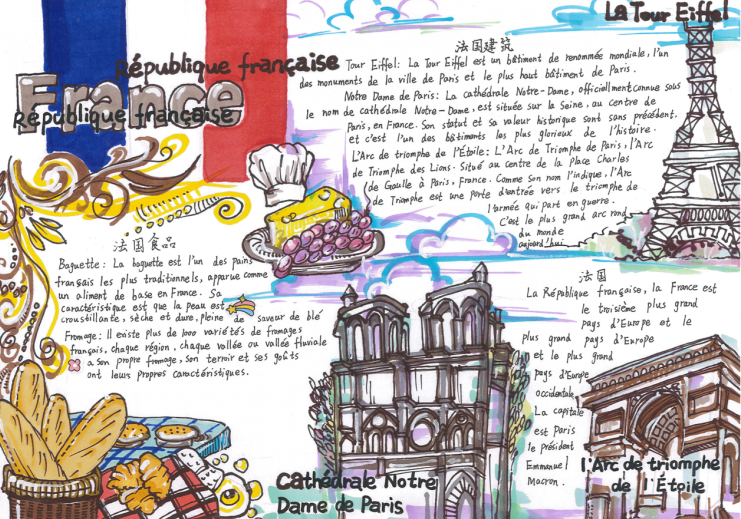 La Tour Eiffel
République française
France
République française
法国建筑
Tour Eiffel: La Tour Eiffel est un bâtiment de renommée mondiale, l'un
des monuments de la ville de Paris et le plus haut bâtiment de Paris.
Notre Dame de Paris: La cathédrale Notre-Dame, officiellment connue sous
le nom de cathédrale Notre-Dame, est située sur la Seine, au centre de
Paris, en France. Son statut et sa valeur historique sont sans précédent,
et c'est l'un des bâtiments les plus glorieux de l'histoire.
L'Arc de triomphe de l'Étoile: L'Arc de Triomphe de Paris, l'Arc
de Triomphe des Lions. Situé au centre de la Place Charles
de Gaulle à Paris, France. Comme son nom l'indique, l'Arc
de Triomphe est une porte d'entrée vers le triomphe de
l'armée qui part en guerre.
C'est le plus grand arc rond
du monde
aujourd'hui
法国食品
Baguette: La baguette est l'un des pains
français les plus traditionnels, apparue comme
un aliment de base en France. Sa
caractéristique est que la peau est
croustillante, sèche et dure, pleine de saveur de blé
Fromage: Il existe plus de 1000 variétés de fromages
français, chaque région, chaque vallée ou vallée fluviale
a son propre fromage, son terroir et ses goûts
ont leurs propres caractéristiques.
法国
La République française, la France est
le troisième plus grand
pays d'Europe et le
plus grand pays d'Europe
et le plus grand
pays d'Europe
occidentale,
La capitale
est Paris
le président
Emmanuel
Macron.
Cathédrale Notre
Dame de Paris
l'Arc de triomphe
de l'Étoile